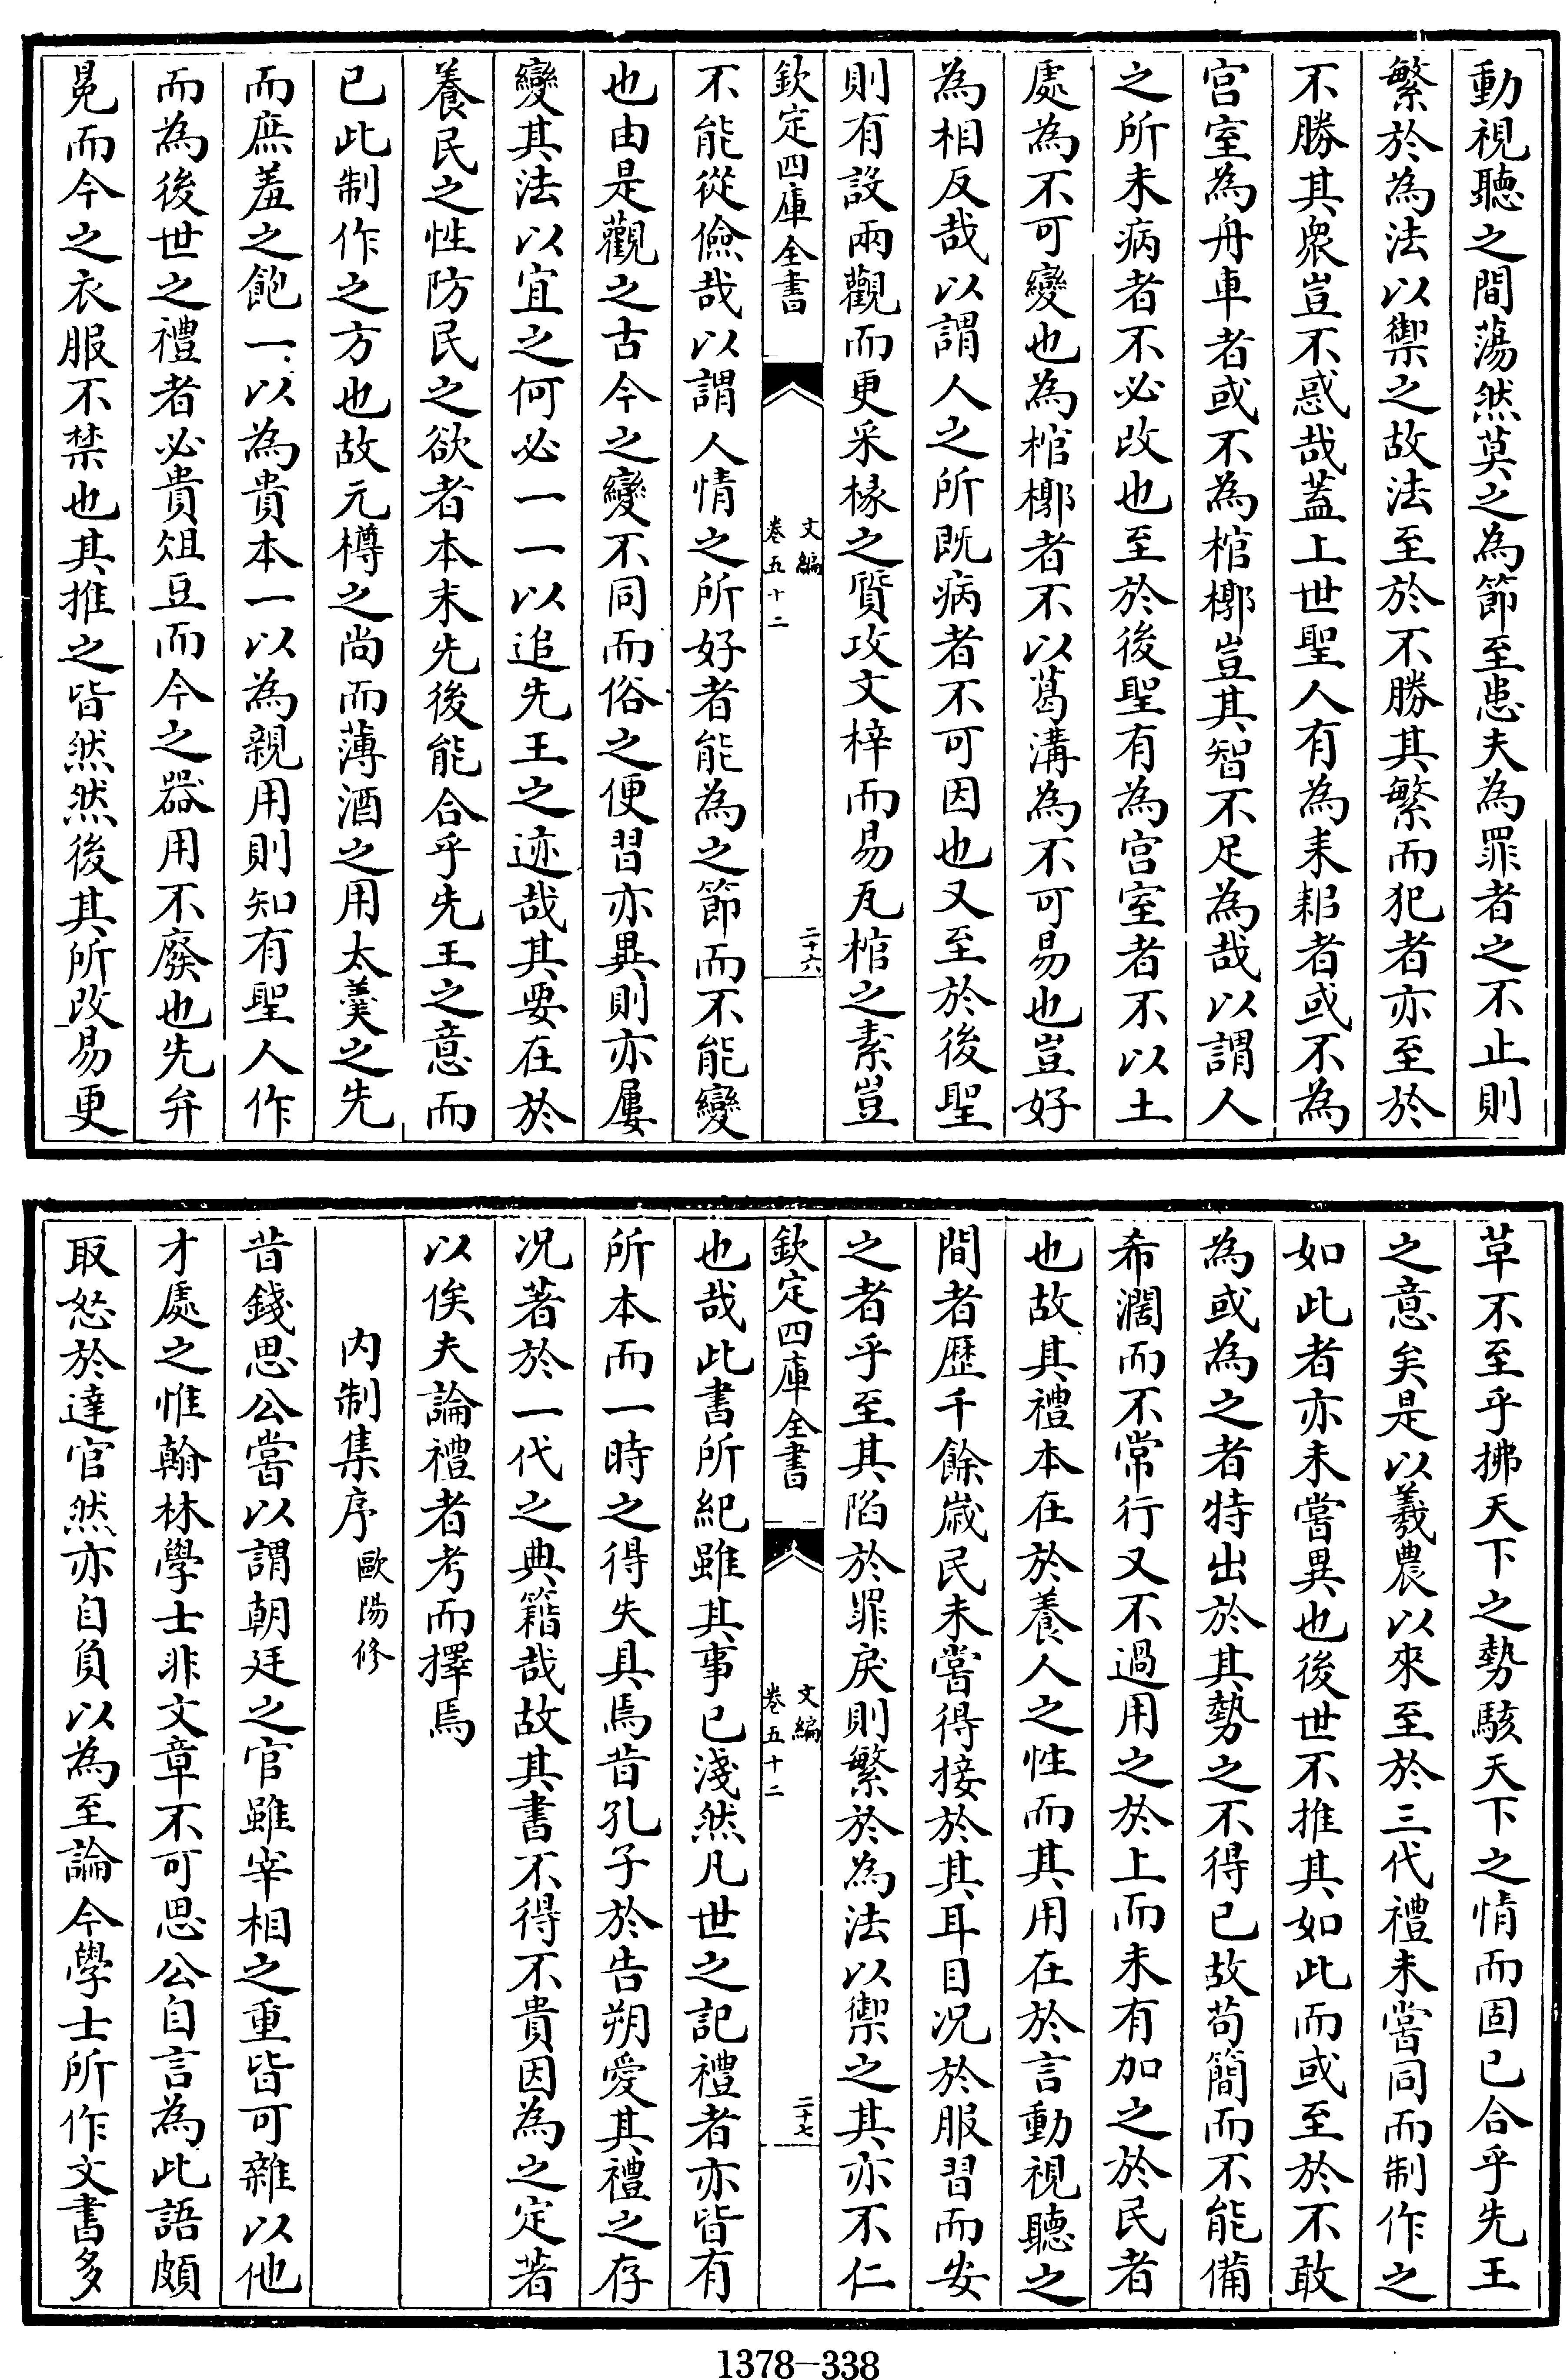 動視聽之間蕩然莫之為節至患夫為罪者之不止則
繁於為法以禦之故法至於不勝其繁而犯者亦至於
不勝其衆豈不惑哉蓋上世聖人有為耒耜者或不為
宫室為舟車者或不為棺槨豈其智不足為哉以謂人
之所未病者不必改也至於後聖有為宫室者不以土
處為不可變也為棺槨者不以葛溝為不可易也豈好
為相反哉以謂人之所既病者不可因也又至於後聖
則有設兩觀而更采椽之質攻文梓而易瓦棺之素豈
欽定四庫全書
文編
卷五十二
二十六
不能從儉哉以謂人情之所好者能為之節而不能變
也由是觀之古今之變不同而俗之便習亦異則亦屢
變其法以宜之何必一一以追先王之迹哉其要在於
養民之性防民之欲者本末先後能合乎先王之意而
已此制作之方也故元樽之尚而薄酒之用太羹之先
而庶羞之飽一以為貴本一以為親用則知有聖人作
而為後世之禮者必貴俎豆而今之器用不廢也先弁
冕而今之衣服不禁也其推之皆然然後其所改易更
草不至乎拂天下之勢駭天下之情而固已合乎先王
之意矣是以羲農以來至於三代禮未嘗同而制作之
如此者亦未嘗異也後世不推其如此而或至於不敢
為或為之者特出於其勢之不得已故苟簡而不能備
希濶而不常行又不過用之於上而未有加之於民者
也故其禮本在於養人之性而其用在於言動視聽之
間者歴千餘嵗民未嘗得接於其耳目况於服習而安
之者乎至其陷於罪戾則繁於為法以禦之其亦不仁
欽定四庫全書
文編
卷五十二
二十七
也哉此書所紀雖其事已淺然凡世之記禮者亦皆有
所本而一時之得失具焉昔孔子於告朔愛其禮之存
况著於一代之典籍哉故其書不得不貴因為之定著
以俟夫論禮者考而擇焉
内制集序 歐陽修
昔錢思公嘗以謂朝廷之官雖宰相之重皆可雜以他
才處之惟翰林學士非文章不可思公自言為此語頗
取怒於達官然亦自負以為至論今學士所作文書多
1378-338